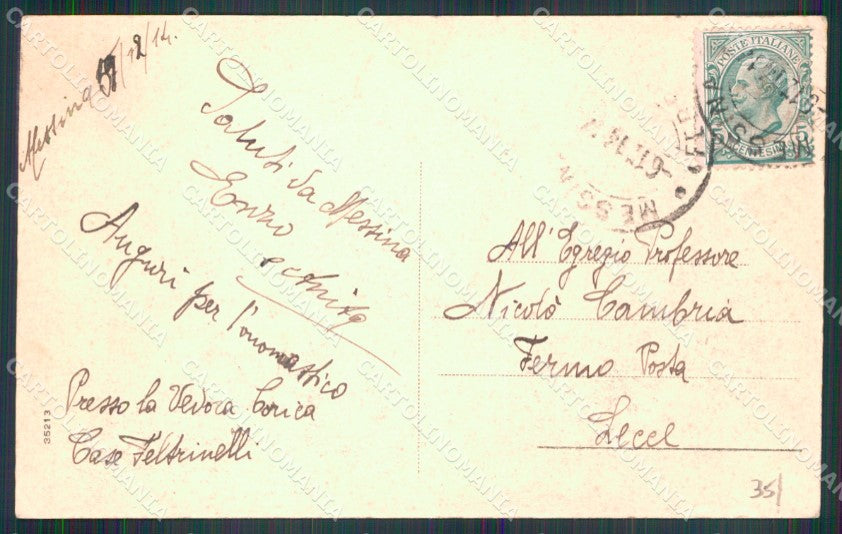 Messina /12/14.
Saluti da Messina
Enzo
Auguri per l'onomastico
Presso la Vedova Corica
Casa Feltrinelli
35213
POSTE ITALIANE
CENTESIMI
MESSINA
All' Egregio Professore
Nicolò Cambria
Fermo Posta
Lecce
35/
CARTOLINOMANIA